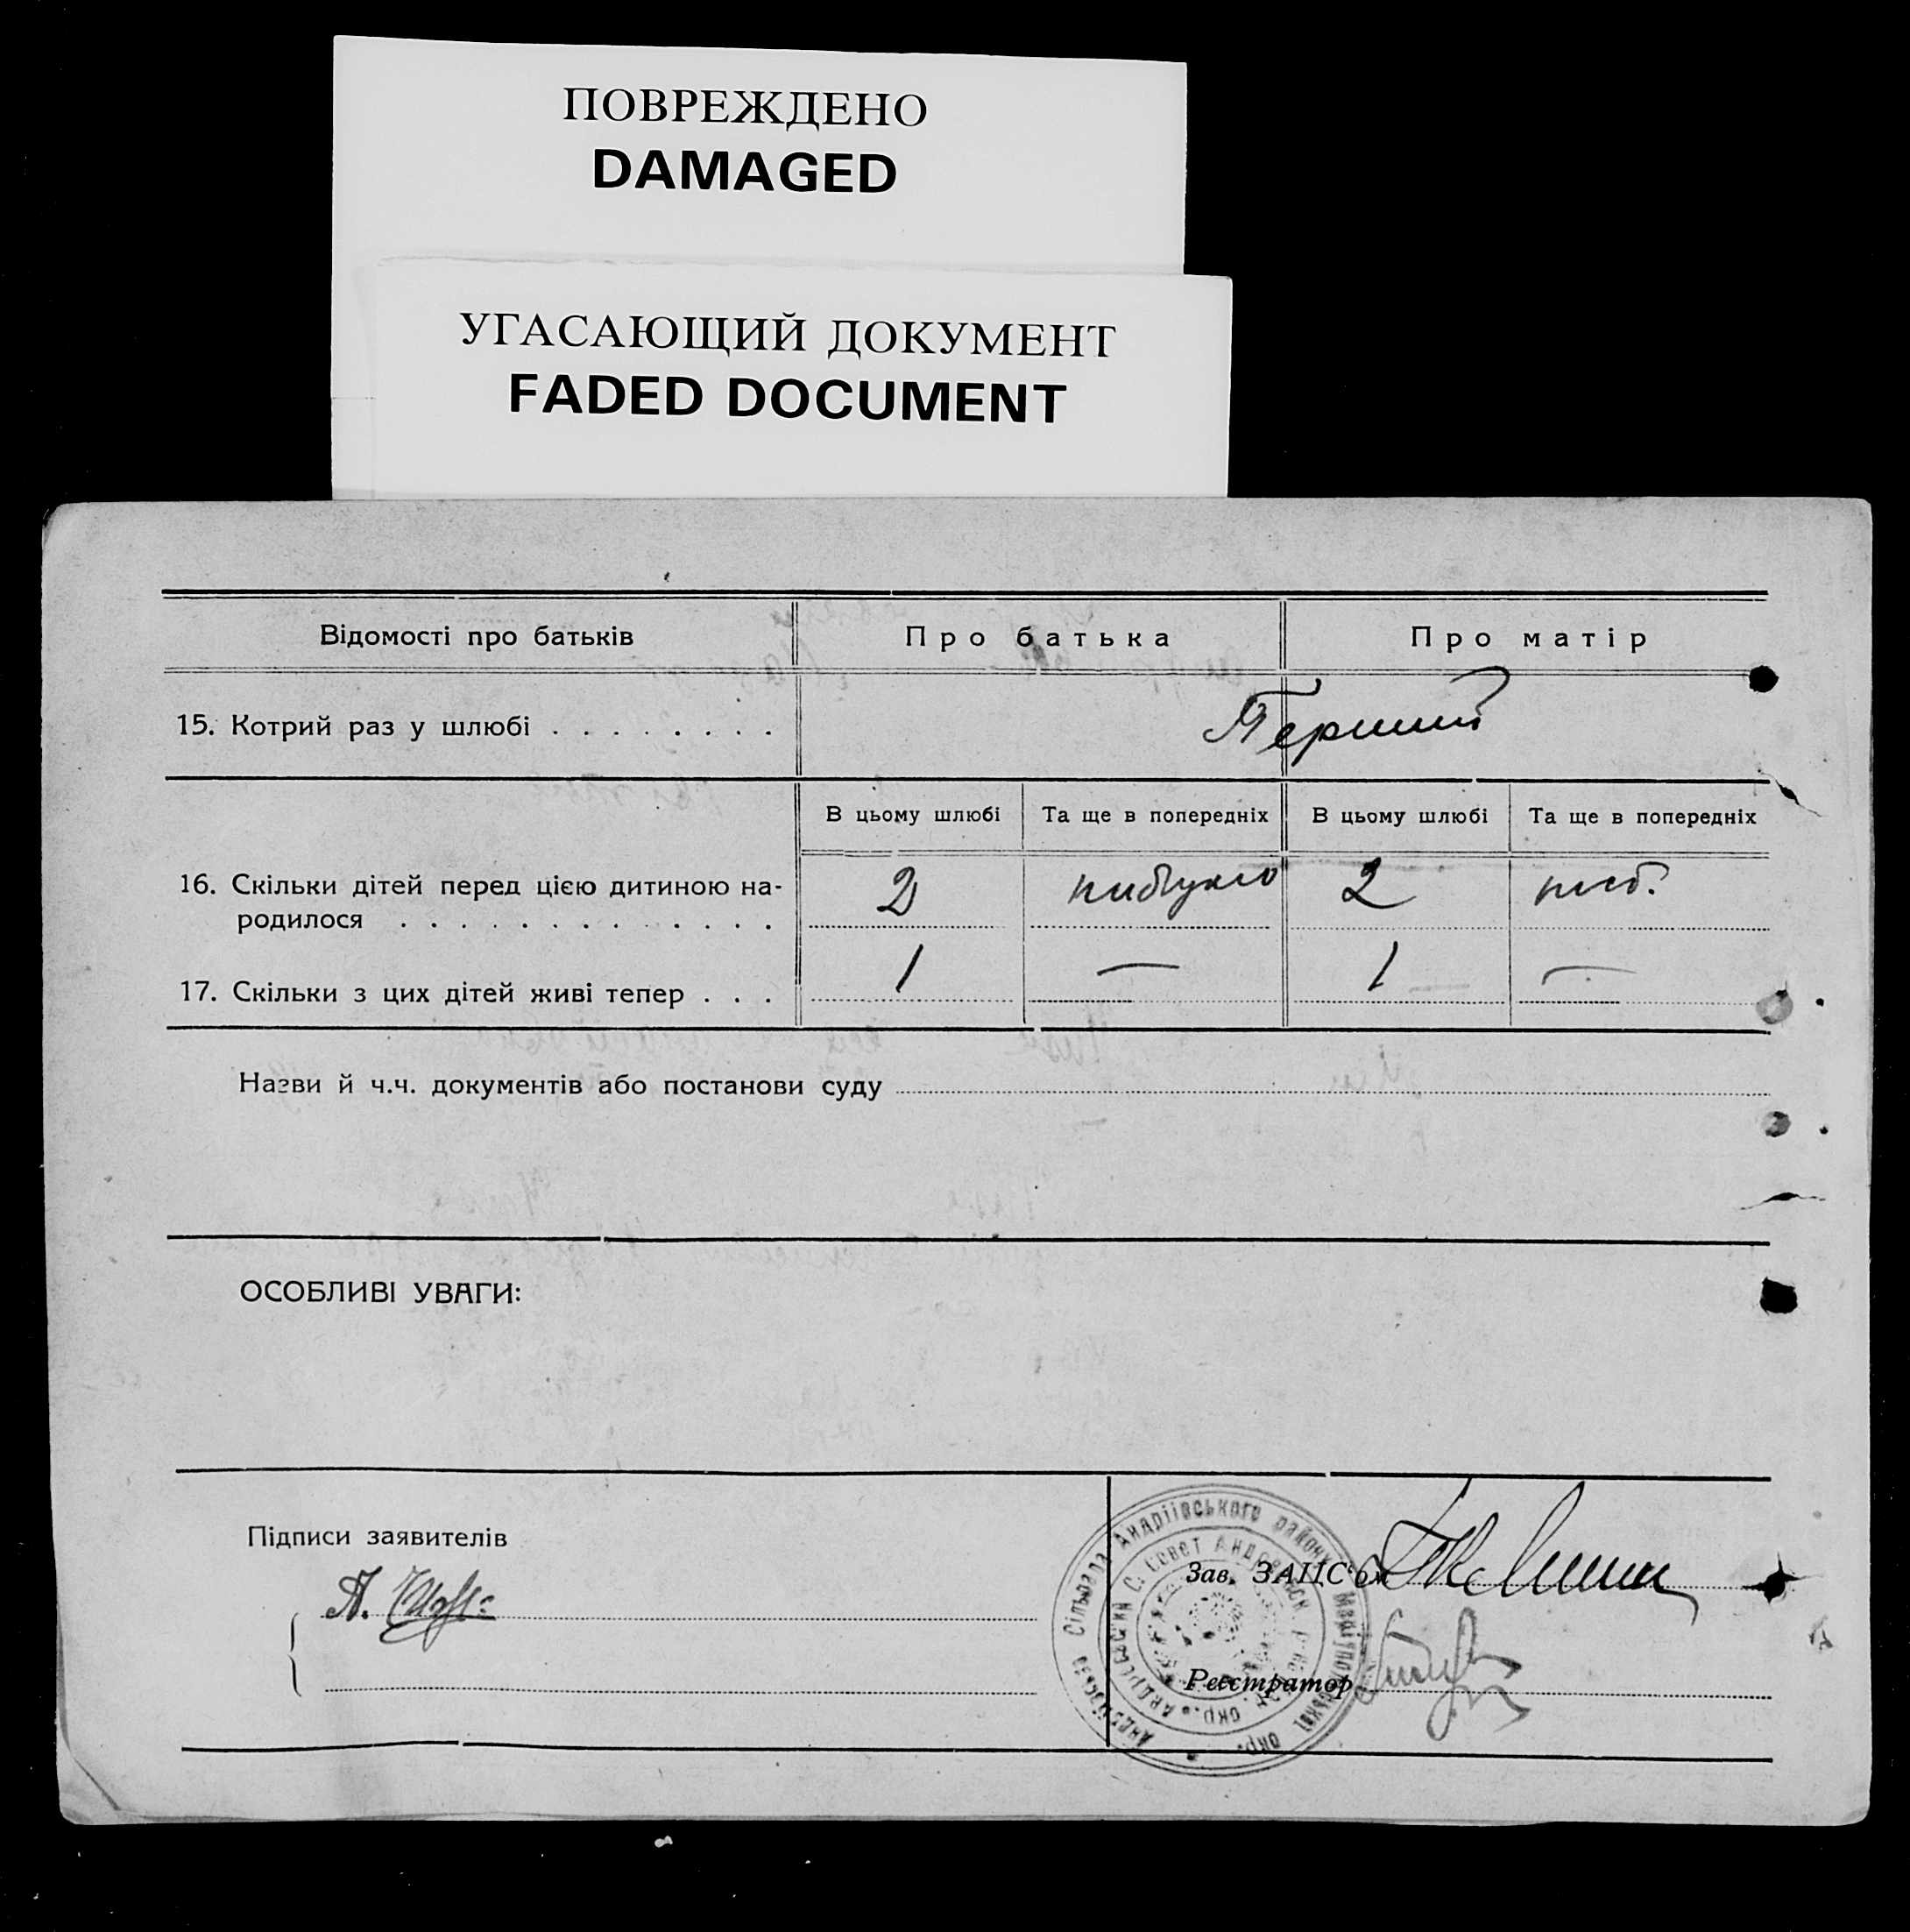 ПОВРЕЖДЕНО
DAMAGED
УГАСАЮЩИЙ ДОКУМЕНТ
FADED DOCUMENT
Відомості про батьків
Про батька
Про матір
15. Котрий раз у шлюбі . . . . . . . .
Перший
В цьому шлюбі
Та ще в попередніх
В цьому шлюбі
Та ще в попередніх
16. Скільки дітей перед цією дитиною на-
родилося . . . . . . . . . . . . .
2
2
17. Скільки з цих дітей живі тепер . . .
1
—
1
—
Назви й ч.ч. документів або постанови суду
ОСОБЛИВІ УВАГИ:
Підписи заявителів
А.
Зав. ЗАЦС'ом
Реєстратор
Сільрада Андріївського району Маріупольської окр.